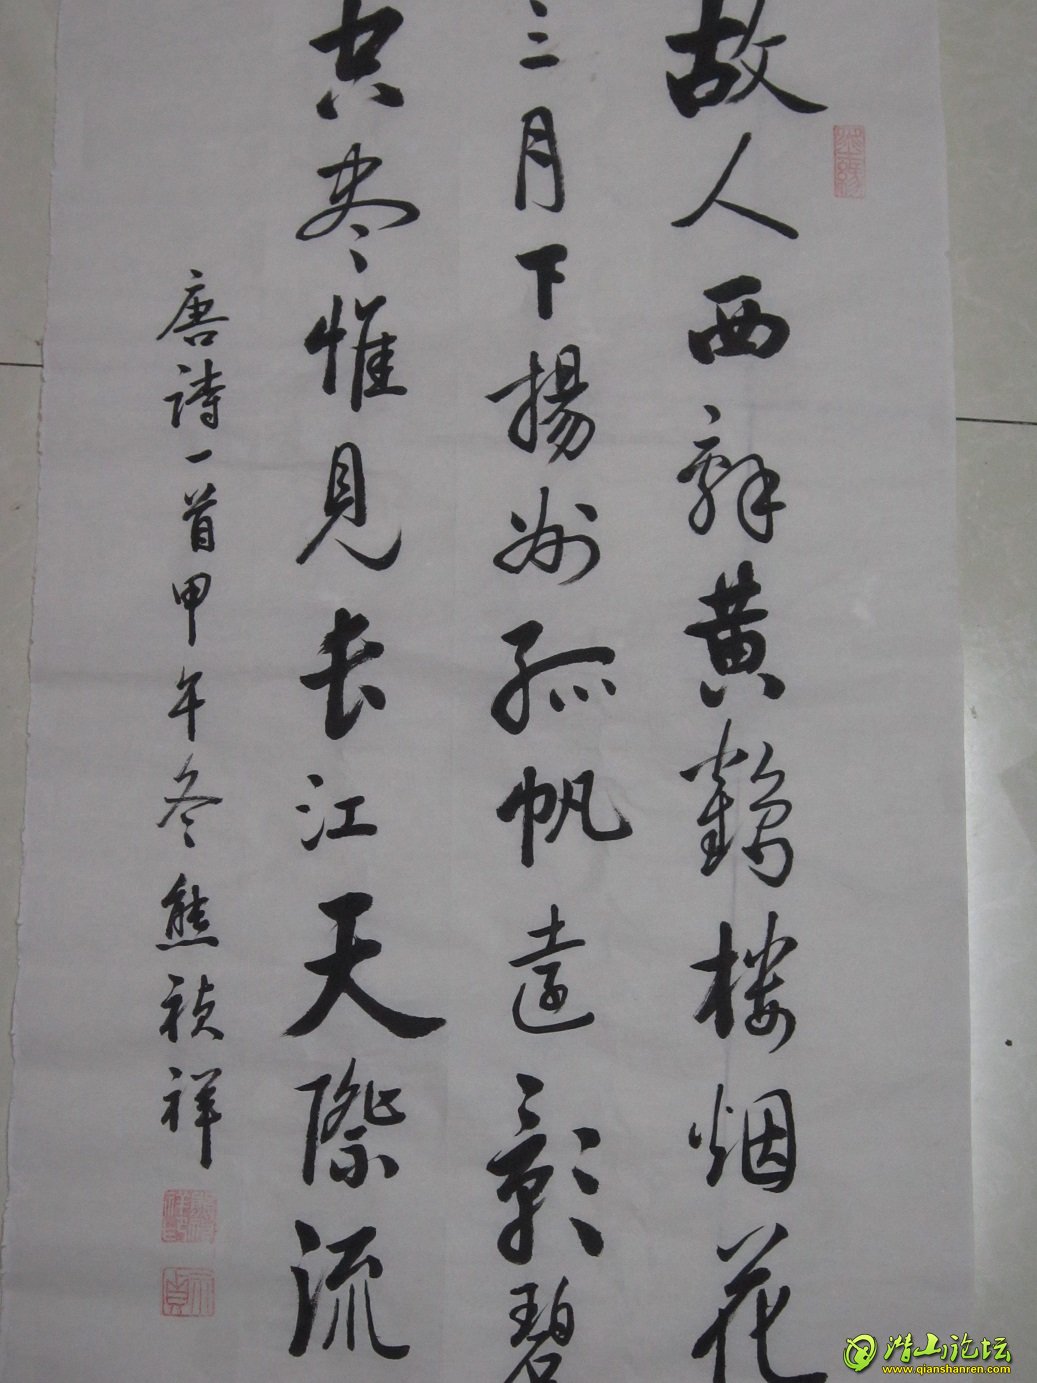 故人西辞黄鹤楼烟花
三月下揚州孤帆遠影碧
空尽惟見長江天際流
唐詩一首甲午冬熊祯祥
潜山论坛
www.qianshanren.com